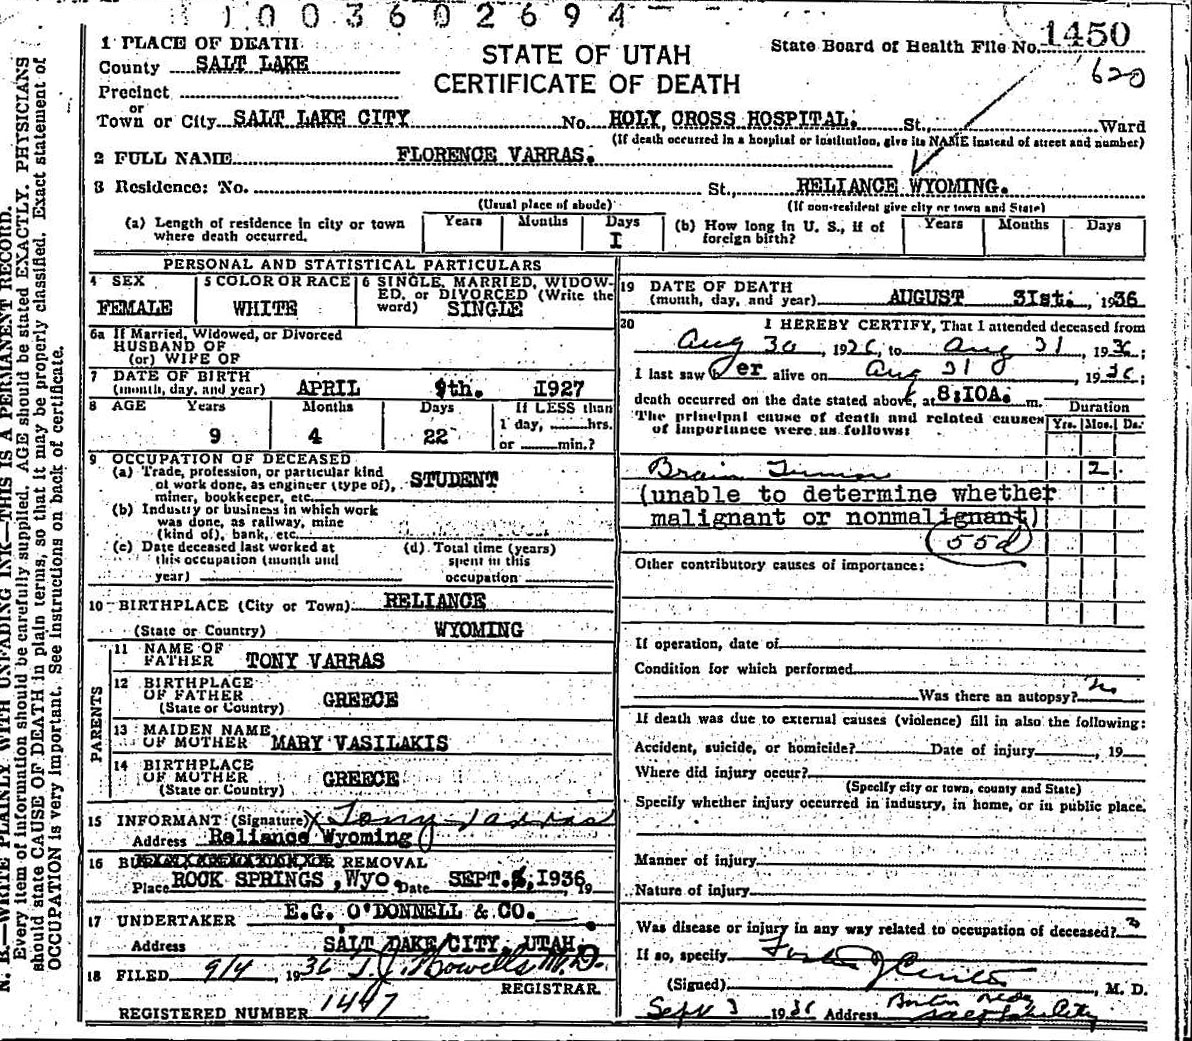 1003602694
1 PLACE OF DEATH
County SALT LAKE
STATE OF UTAH
CERTIFICATE OF DEATH
State Board of Health File No. 1450
620
Precinct
or
Town or City SALT LAKE CITY No. HOLY CROSS HOSPITAL. St., Ward
(If death occurred in a hospital or institution, give its NAME instead of street and number)
2 FULL NAME FLORENCE VARRAS.
3 Residence: No. St., RELIANCE WYOMING.
(Usual place of abode) (If non-resident give city or town and State)
(a) Length of residence in city or town where death occurred. Years Months Days I
(b) How long in U. S., if of foreign birth? Years Months Days
PERSONAL AND STATISTICAL PARTICULARS
4 SEX FEMALE
5 COLOR OR RACE WHITE
6 SINGLE, MARRIED, WIDOWED, or DIVORCED (Write the word) SINGLE
6a If Married, Widowed, or Divorced
HUSBAND OF
(or) WIFE OF
7 DATE OF BIRTH
(month, day, and year) APRIL 9th. 1927
8 AGE Years Months Days If LESS than
9 4 22 1 day, hrs.
or min.?
9 OCCUPATION OF DECEASED
(a) Trade, profession, or particular kind
of work done, as engineer (type of), STUDENT
miner, bookkeeper, etc.
(b) Industry or business in which work
was done, as railway, mine
(kind of), bank, etc.
(c) Date deceased last worked at this occupation (month and year)
(d) Total time (years) spent in this occupation
10 BIRTHPLACE (City or Town) RELIANCE
(State or Country) WYOMING
PARENTS
11 NAME OF
FATHER TONY VARRAS
12 BIRTHPLACE
OF FATHER GREECE
(State or Country)
13 MAIDEN NAME
OF MOTHER MARY VASILAKIS
14 BIRTHPLACE
OF MOTHER GREECE
(State or Country)
15 INFORMANT (Signature) X Tony Varras
Address Reliance Wyoming
16 REMOVAL
Place ROCK SPRINGS, Wyo. Date SEPT. 1936 19
17 UNDERTAKER E.G. O'DONNELL & CO.
Address SALT LAKE CITY, UTAH.
18 FILED 9/4 1936 M.D.
REGISTRAR.
REGISTERED NUMBER 1447
19 DATE OF DEATH
(month, day, and year) AUGUST 31st. 1936
20 I HEREBY CERTIFY, That I attended deceased from
Aug 30, 1936, to Aug 31, 1936;
I last saw her alive on Aug 31, 1936;
death occurred on the date stated above, at 8:10A. m.
The principal cause of death and related causes
of importance were as follows:
Duration
Yrs. Mos. Ds.
Brain Tumor 2
(unable to determine whether
malignant or nonmalignant)
55d
Other contributory causes of importance:
If operation, date of
Condition for which performed
Was there an autopsy? no
If death was due to external causes (violence) fill in also the following:
Accident, suicide, or homicide? Date of injury , 19
Where did injury occur?
(Specify city or town, county and State)
Specify whether injury occurred in industry, in home, or in public place.
Manner of injury
Nature of injury
Was disease or injury in any way related to occupation of deceased?
If so, specify
(Signed) , M. D.
Sept 3 1936 Address Salt Lake City
N. B.—WRITE PLAINLY WITH UNFADING INK—THIS IS A PERMANENT RECORD.
Every item of information should be carefully supplied. AGE should be stated EXACTLY. PHYSICIANS
should state CAUSE OF DEATH in plain terms, so that it may be properly classified. Exact statement of
OCCUPATION is very important. See instructions on back of certificate.